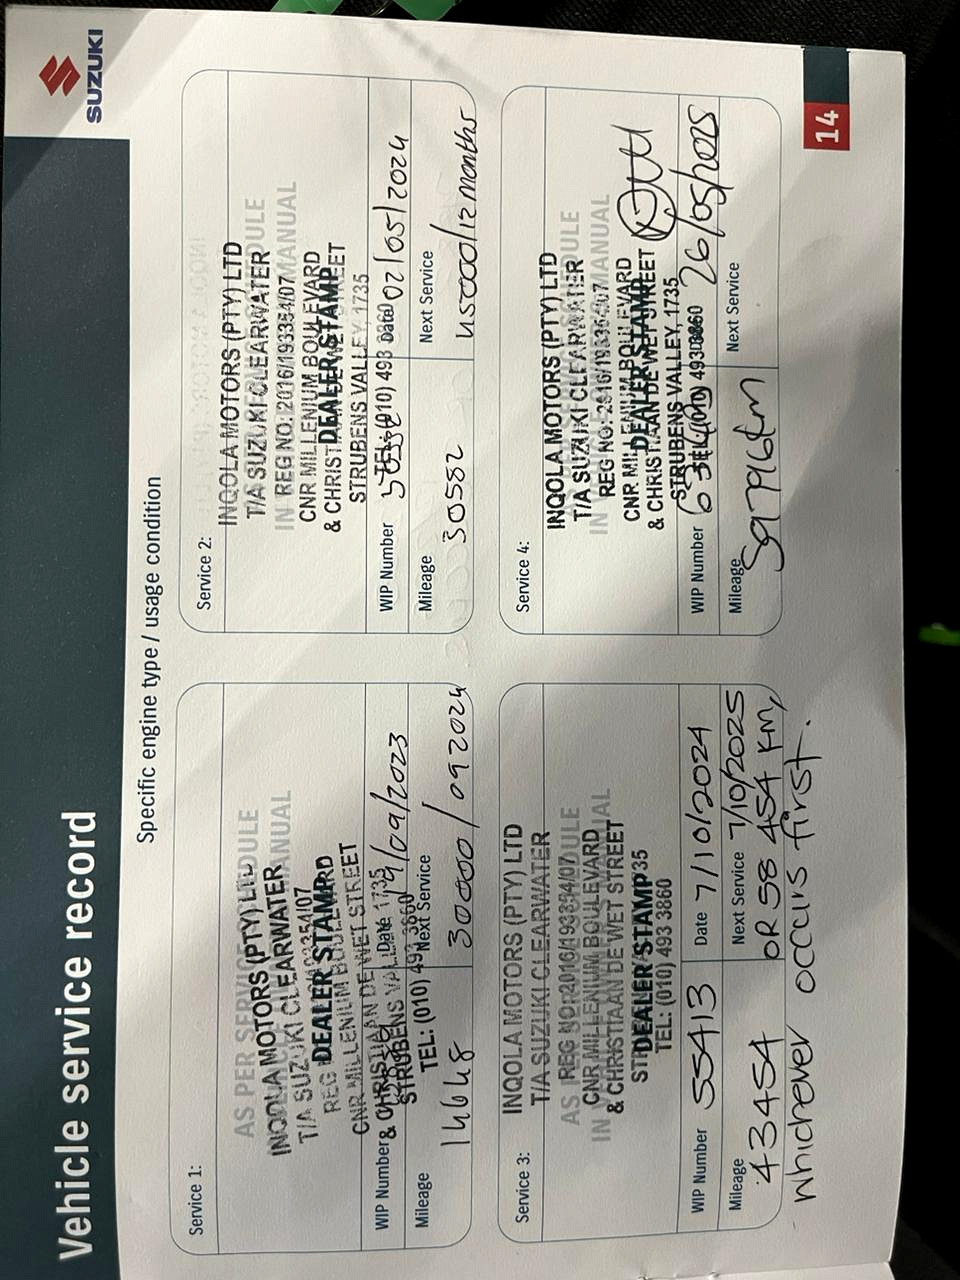 Vehicle service record
SUZUKI
Specific engine type / usage condition
Service 1:
AS PER SERVICE SCHEDULE
IN VEHICLE MANUAL
INQOLA MOTORS (PTY) LTD
T/A SUZUKI CLEARWATER
DEALER STAMP
CNR MILLENIUM BOULEVARD
& CHRISTIAAN DE WET STREET
STRUBENS VALLEY, 1735
TEL: (010) 493 3860
WIP Number
Date 9/09/2023
Mileage
14648
Next Service
30000/092024
Service 2:
INQOLA MOTORS (PTY) LTD
T/A SUZUKI CLEARWATER
REG NO: 2016/193354/07
CNR MILLENIUM BOULEVARD
& CHRISTIAAN DE WET STREET
DEALER STAMP
STRUBENS VALLEY, 1735
TEL: (010) 493 3860
WIP Number
Date 02/05/2024
Mileage
30582
Next Service
45000/12 months
Service 3:
INQOLA MOTORS (PTY) LTD
T/A SUZUKI CLEARWATER
REG NO: 2016/193354/07
CNR MILLENIUM BOULEVARD
& CHRISTIAAN DE WET STREET
DEALER STAMP
TEL: (010) 493 3860
WIP Number 55413
Date 7/10/2024
Mileage
43454
Next Service 7/10/2025
OR 58 454 KM,
whichever occurs first.
Service 4:
INQOLA MOTORS (PTY) LTD
T/A SUZUKI CLEARWATER
REG NO: 2016/193354/07
CNR MILLENIUM BOULEVARD
& CHRISTIAAN DE WET STREET
DEALER STAMP
STRUBENS VALLEY, 1735
TEL: (010) 493 3860
WIP Number
26/05/2025
Mileage
59796km
Next Service
14